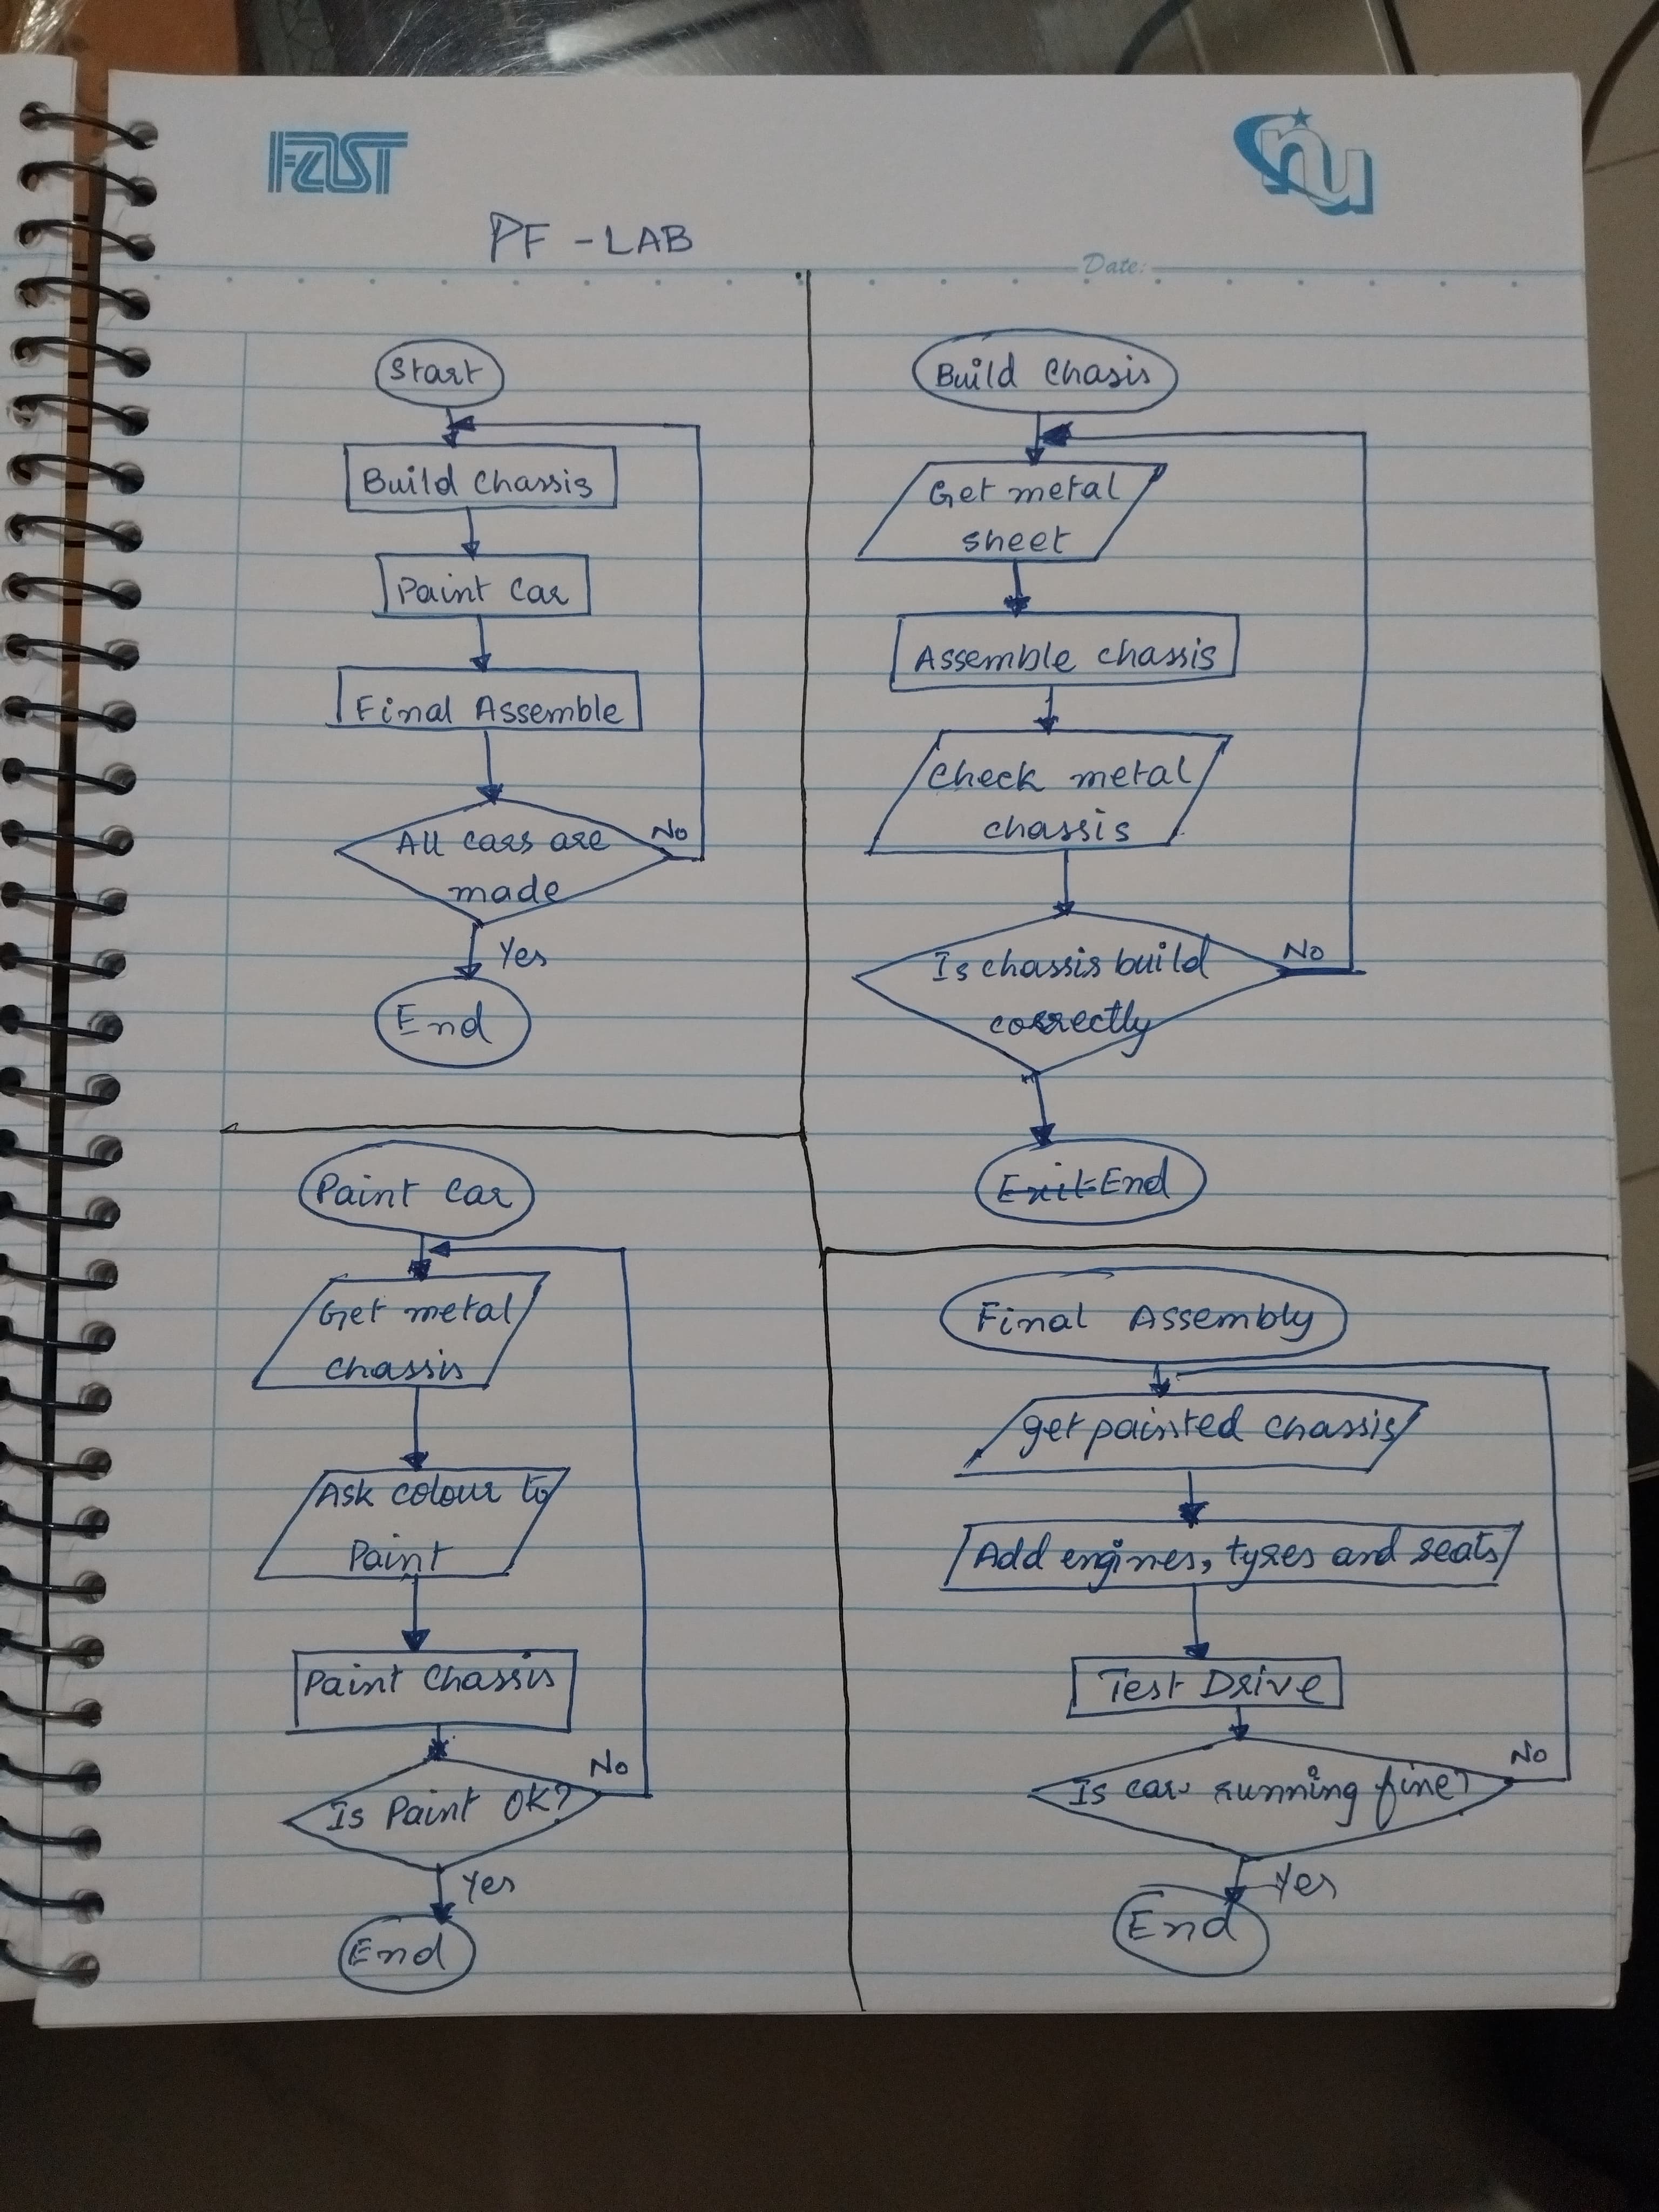 FAST
nu
PF - LAB
Date:
Start
Build Chassis
Paint Car
Final Assemble
All cars are
made
No
Yes
End
Build Chasis
Get metal
sheet
Assemble chassis
Check metal
chassis
Is chassis build
correctly
No
Exit End
Paint Car
Get metal
chassis
Ask colour to
Paint
Paint Chassis
Is Paint OK?
No
Yes
End
Final Assembly
get painted chassis
Add engines, tyres and seats
Test Drive
Is car running fine?
No
Yes
End